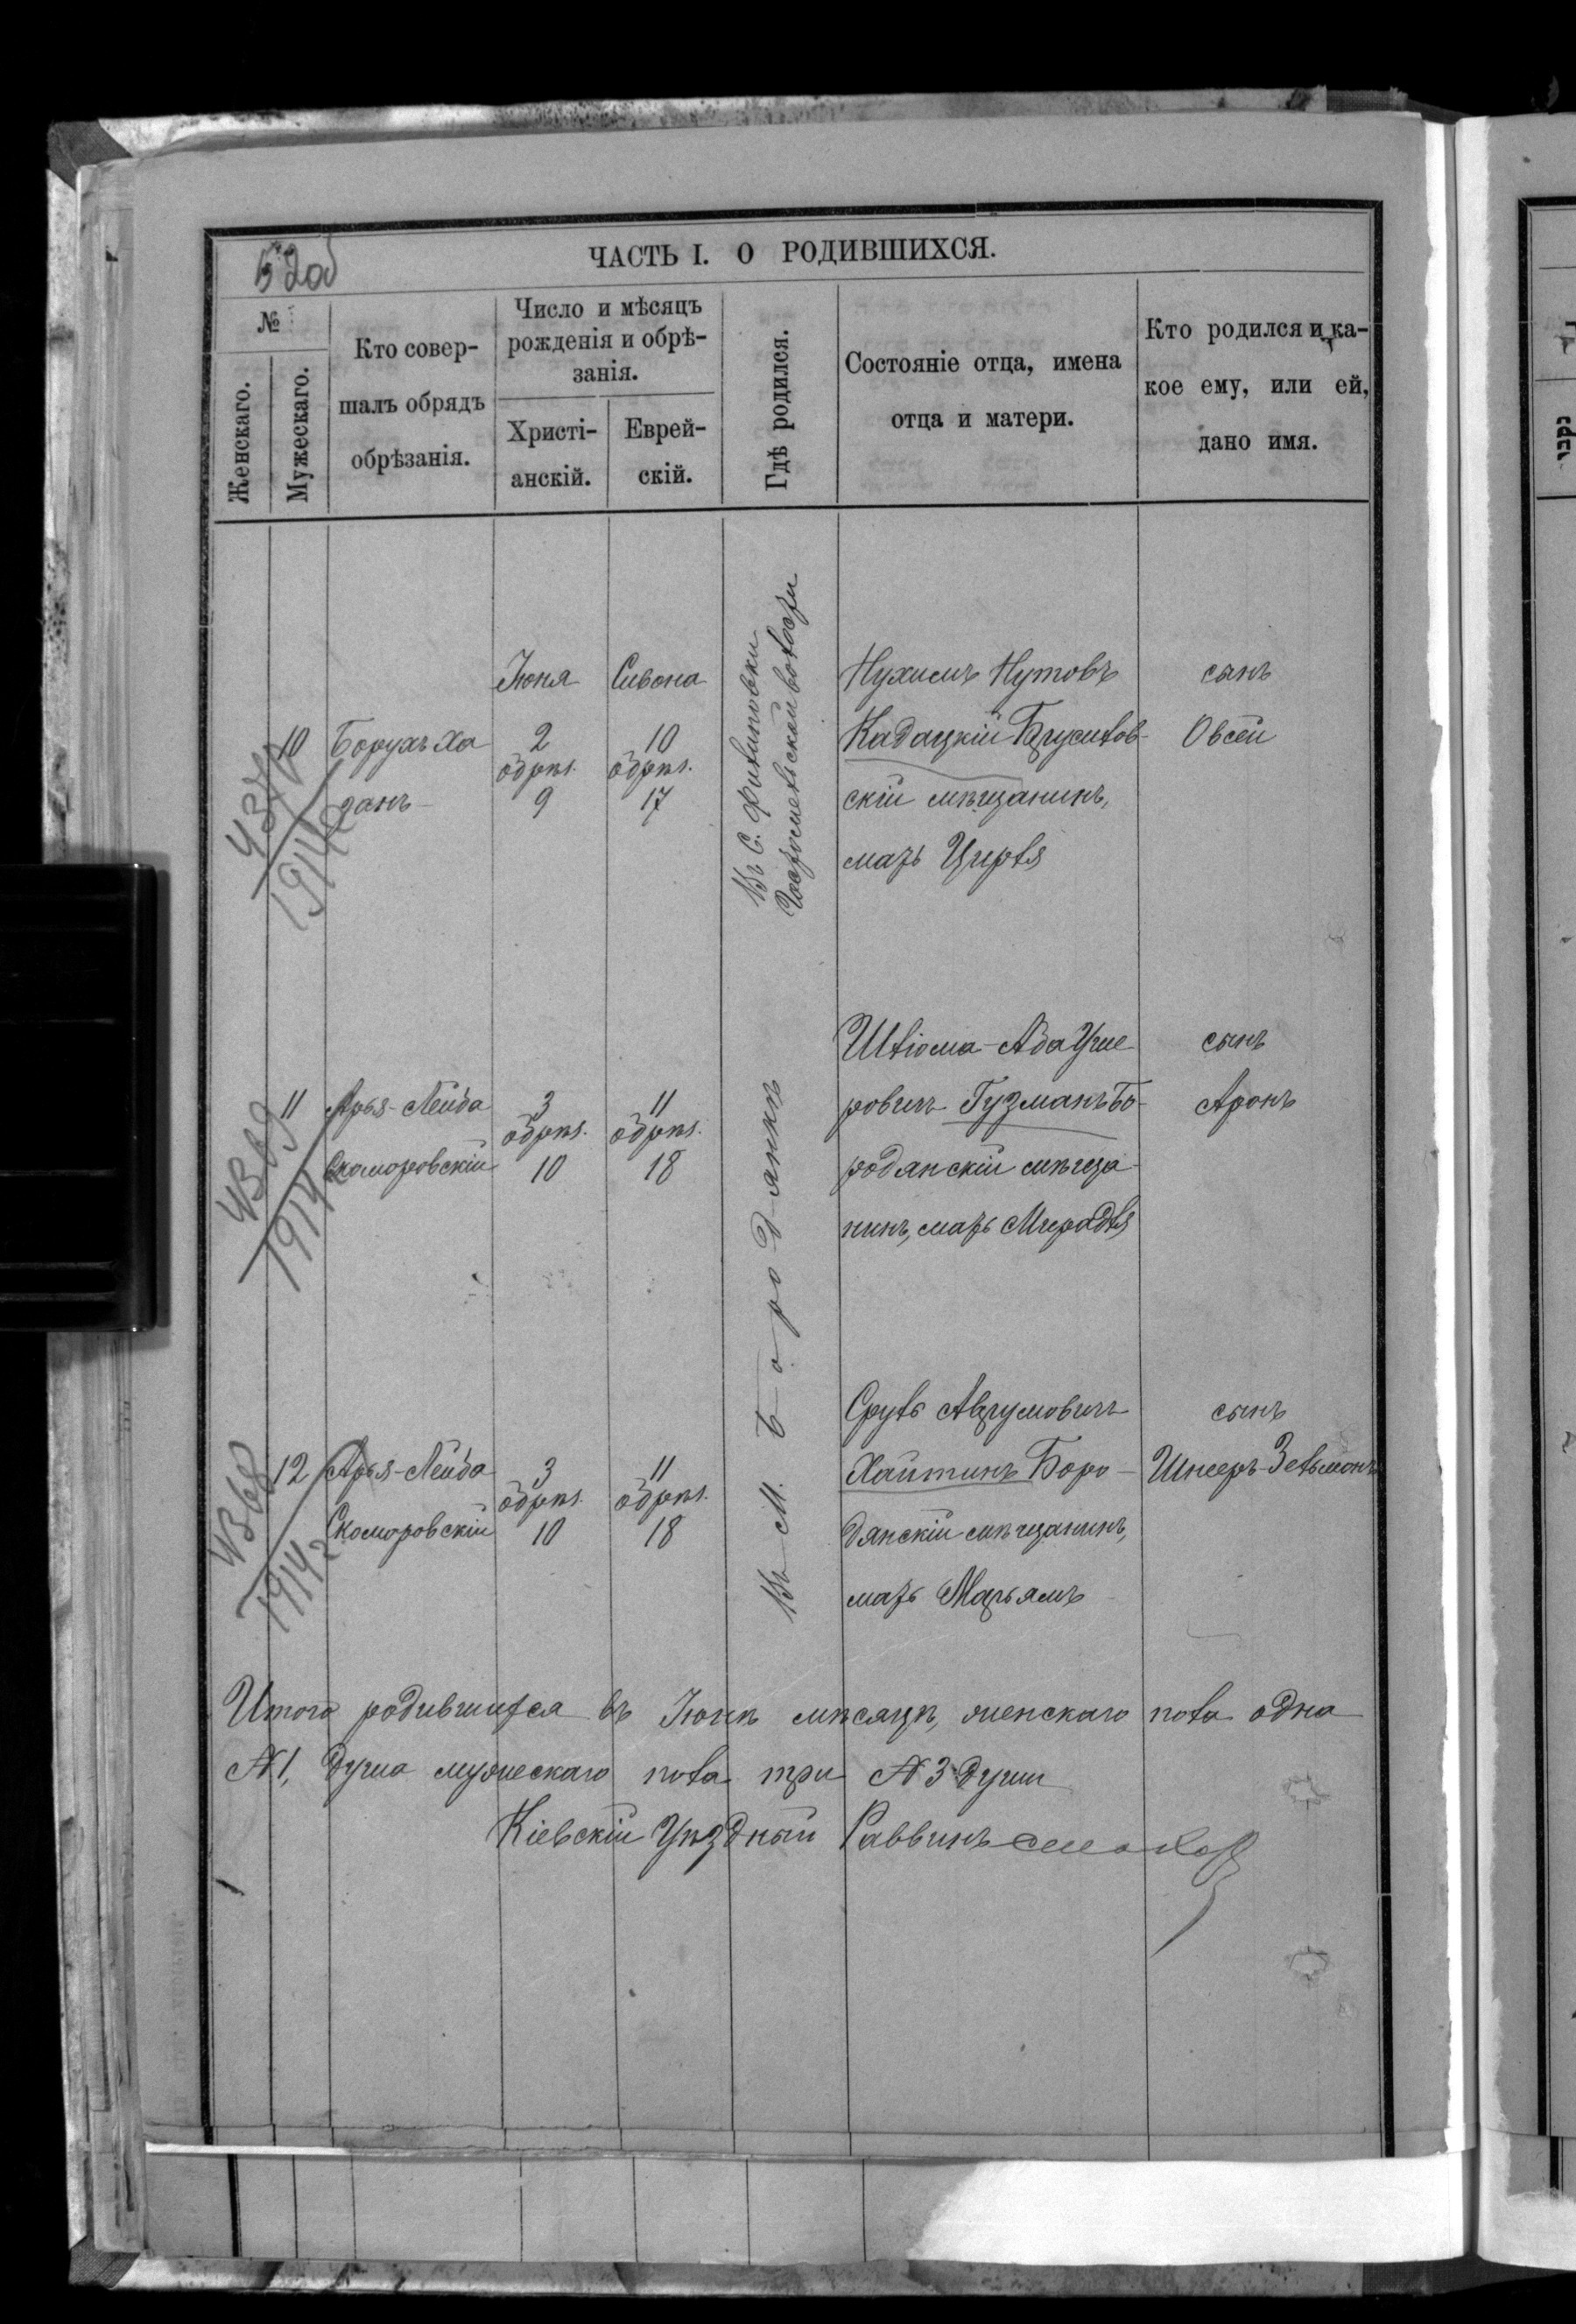 52об
ЧАСТЬ I. О РОДИВШИХСЯ.
№
Женскаго.
Мужескаго.
Кто совер-
шалъ обрядъ
обрѣзанія.
Число и мѣсяцъ
рожденія и обрѣ-
занія.
Христі-
анскій.
Еврей-
скій.
Гдѣ родился.
Состояніе отца, имена
отца и матери.
Кто родился и ка-
кое ему, или ей,
дано имя.
Іюня
Сивона
10
Борухъ Хо
данъ
2
обрѣз.
9
10
обрѣз.
17
Въ С. Филиповки
волости
Нухимъ Нутовъ
Кадацкій Брусилов-
скій мѣщанинъ,
мать Цирля
сынъ
Овсей
1914
11
Арья-Лейба
Скоморовскій
3
обрѣз.
10
11
обрѣз.
18
Въ М. Бородянкѣ
Шліома-Аба Уше
ровичъ Гузманъ Бо-
родянскій мѣща-
нинъ, мать
сынъ
Аронъ
4369
1914
12
Арья-Лейба
Скоморовскій
3
обрѣз.
10
11
обрѣз.
18
Сруль Аврумовичъ
Хайтинъ Боро-
дянскій мѣщанинъ,
мать Марьямъ
сынъ
Шнеер-Зельманъ
4368
1914
Итого родившихся въ Іюнѣ мѣсяцѣ, женскаго пола одна
№ 1, душа мужескаго пола три № 3 души
Кіевскій Уѣздный Раввинъ